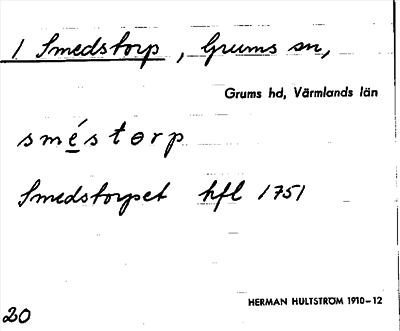 1 Smedstorp, Grums sn,
Grums hd, Värmlands län
sméstorp
Smedstorpet hfl 1751
HERMAN HULTSTRÖM 1910-12
20